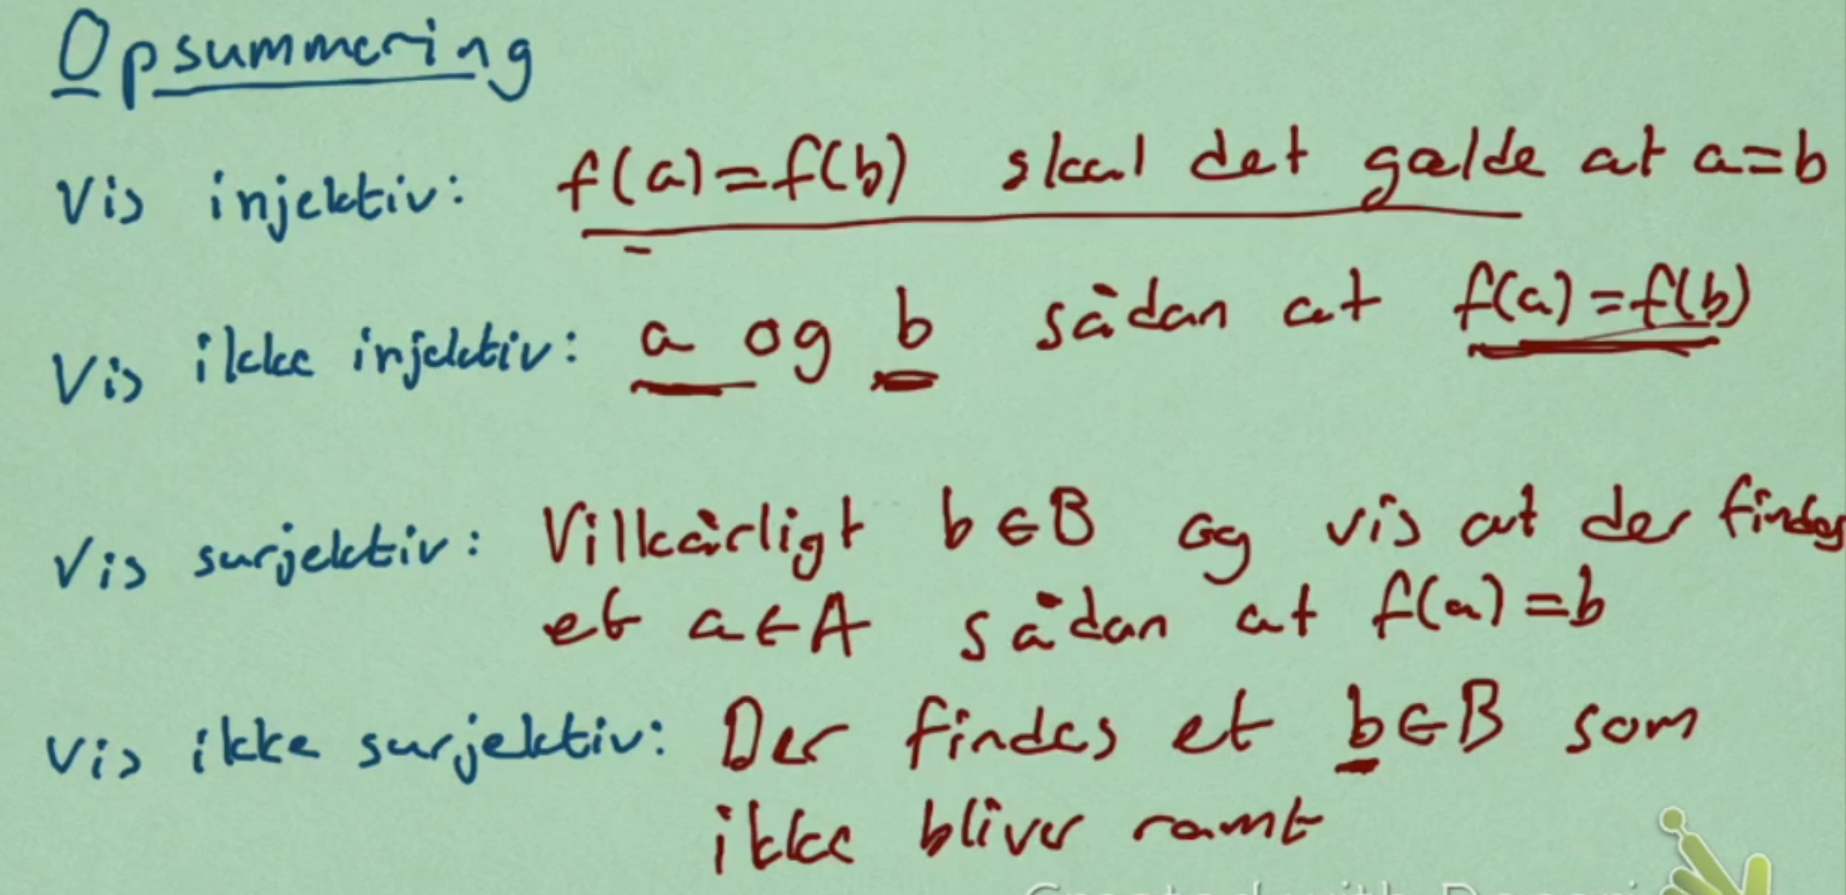 Opsummering
Vis injektiv: f(a)=f(b) skal det gælde at a=b
Vis ikke injektiv: a og b sådan at f(a)=f(b)
Vis surjektiv: Vilkårligt b∈B og vis at der findes
et a∈A sådan at f(a)=b
Vis ikke surjektiv: Der findes et b∈B som
ikke bliver ramt